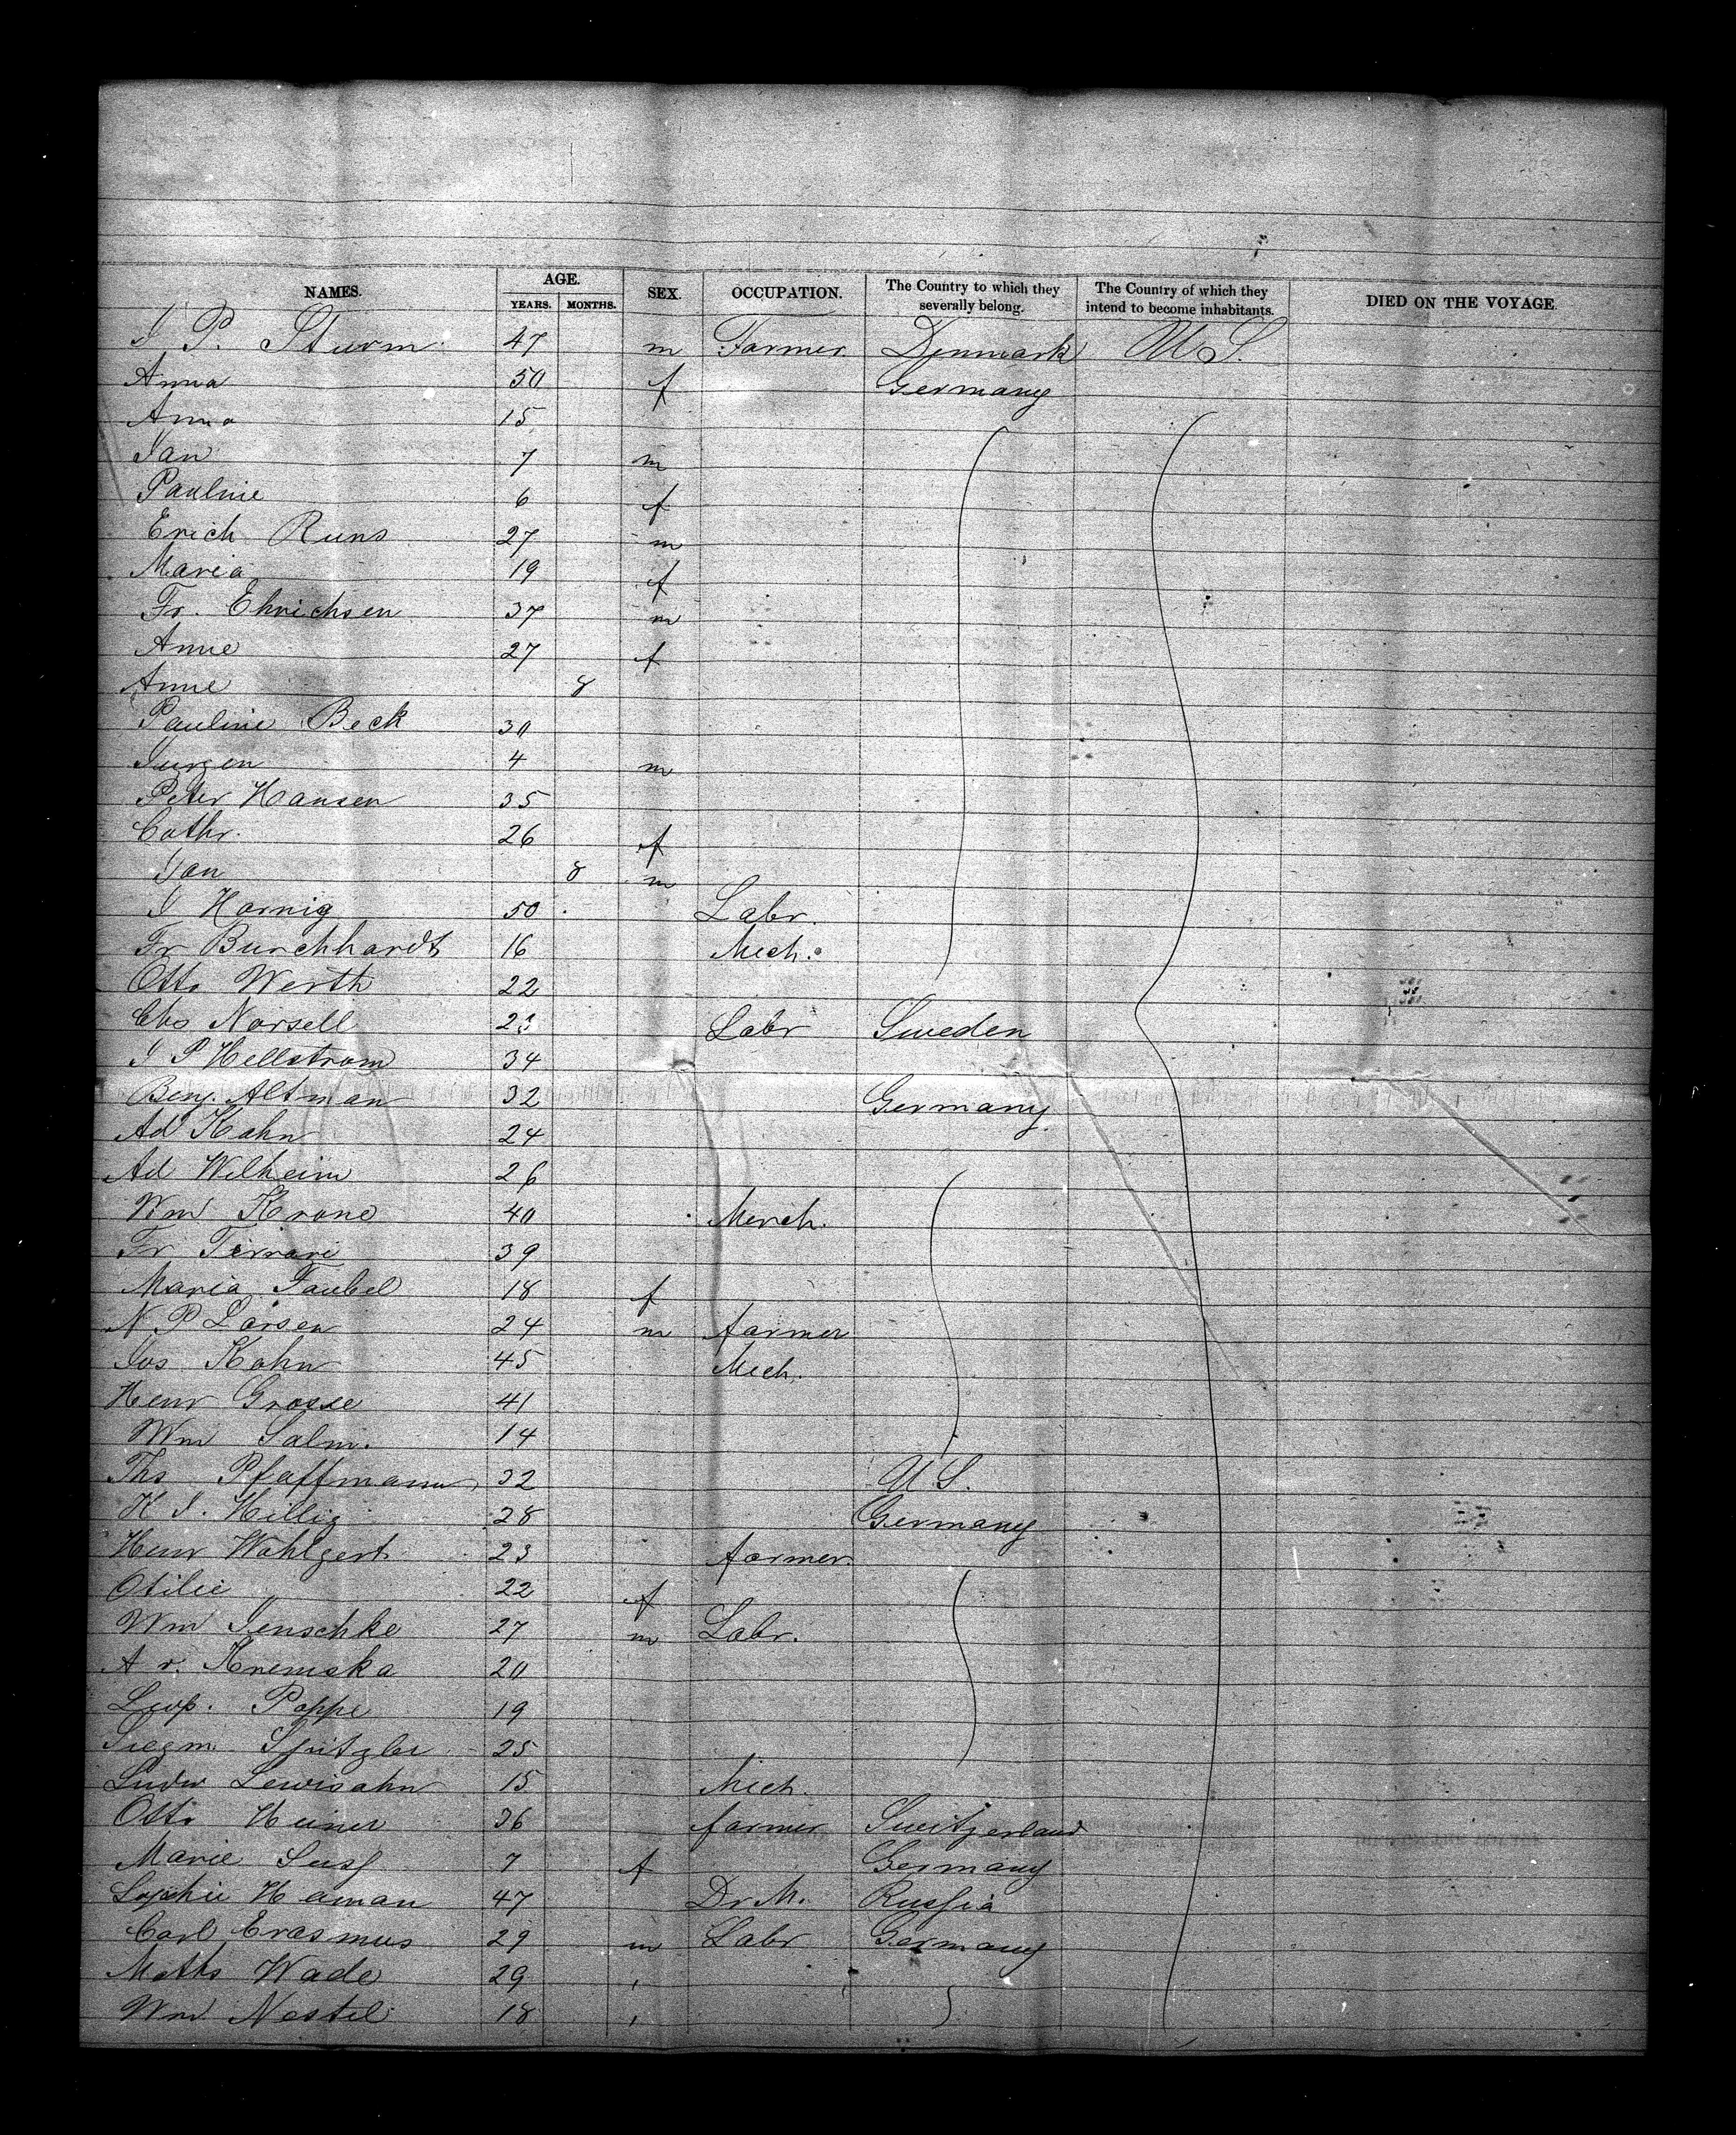 NAMES. AGE. YEARS. MONTHS. SEX. OCCUPATION. The Country to which they severally belong. The Country of which they intend to become inhabitants. DIED ON THE VOYAGE.
J P. Sturm 47 m Farmer Denmark U S.
Anna 50 f Germany
Anna 15
Jan 7 m
Pauline 6 f
Erich Runs 27 m
Maria 19 f
Fr. Ehrichsen 37 m
Anne 27 f
Anne 8
Pauline Beck 30
Jurgen 4 m
Peter Hansen 35
Cathr. 26 f
Jan 8 m
J Hornig 50 Labr.
Fr Burchhardt 16 Mech.
Otto Werth 22
Chs Norsell 23 Labr Sweden
J P Hellstrom 34
Benj. Altman 32 Germany
Ad Kahn 24
Ad Wilheim 26
Wm Krone 40 Merch.
Fr Ferrari 39
Maria Faubel 18 f
N P Larsen 24 m farmer
Jos Kohn 45 Mech.
Henr Grosse 41
Wm Salm. 14
Ths Pfaffmann 32 U S.
K J. Hillig 28 Germany
Henr Wohlgert 23 farmer
Otilie 22 f
Wm Jenschke 27 m Labr.
A v. Kremska 20
Leop. Poppe 19
Siegm Spitzler 25
Ludw Lewisohn 15 Mech
Otto Heiner 36 farmer Switzerland
Marie 7 f Germany
Sophie Heiman 47 Dr M. Russia
Carl Erasmus 29 m Labr Germany
Maths Wade 29
Wm Nestel 18